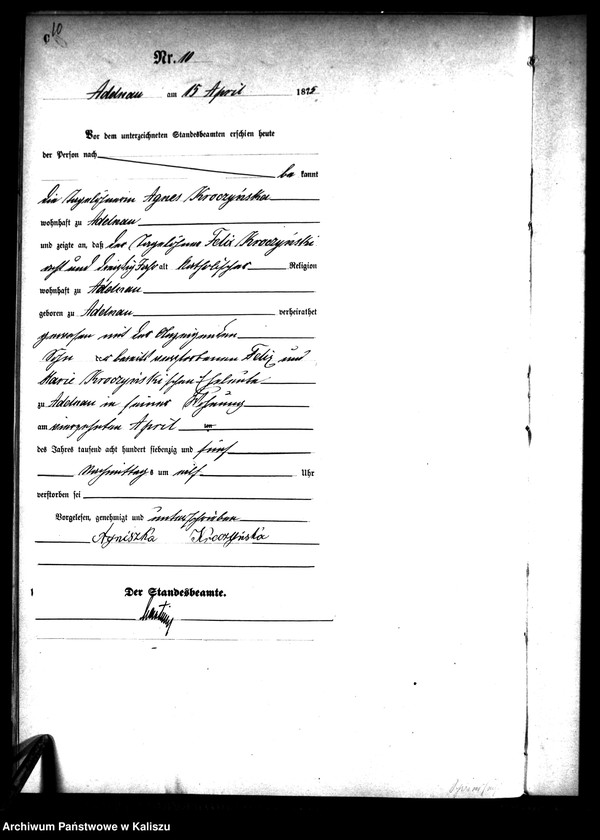 10
Nr. 10
Adelnau am 15 April 1875
Vor dem unterzeichneten Standesbeamten erschien heute
der Person nach
be kannt
die Tagelöhnerin Agnes Kroczyńska
wohnhaft zu Adelnau
und zeigte an, daß der Tagelöhner Felix Kroczyński
acht und dreißig Jahr alt katholischer Religion
wohnhaft zu Adelnau
geboren zu Adelnau verheirathet
gewesen mit der Anzeigenden
Sohn der bereits verstorbenen Felix und
Marie Kroczyński schen Eheleute
zu Adelnau in seiner Wohnung
am vierzehnten April
des Jahres tausend acht hundert siebenzig und fünf
Nachmittags um elf Uhr
verstorben sei
Vorgelesen, genehmigt und unterschrieben
Agniszka Kroczyńska
Der Standesbeamte.
Archiwum Państwowe w Kaliszu